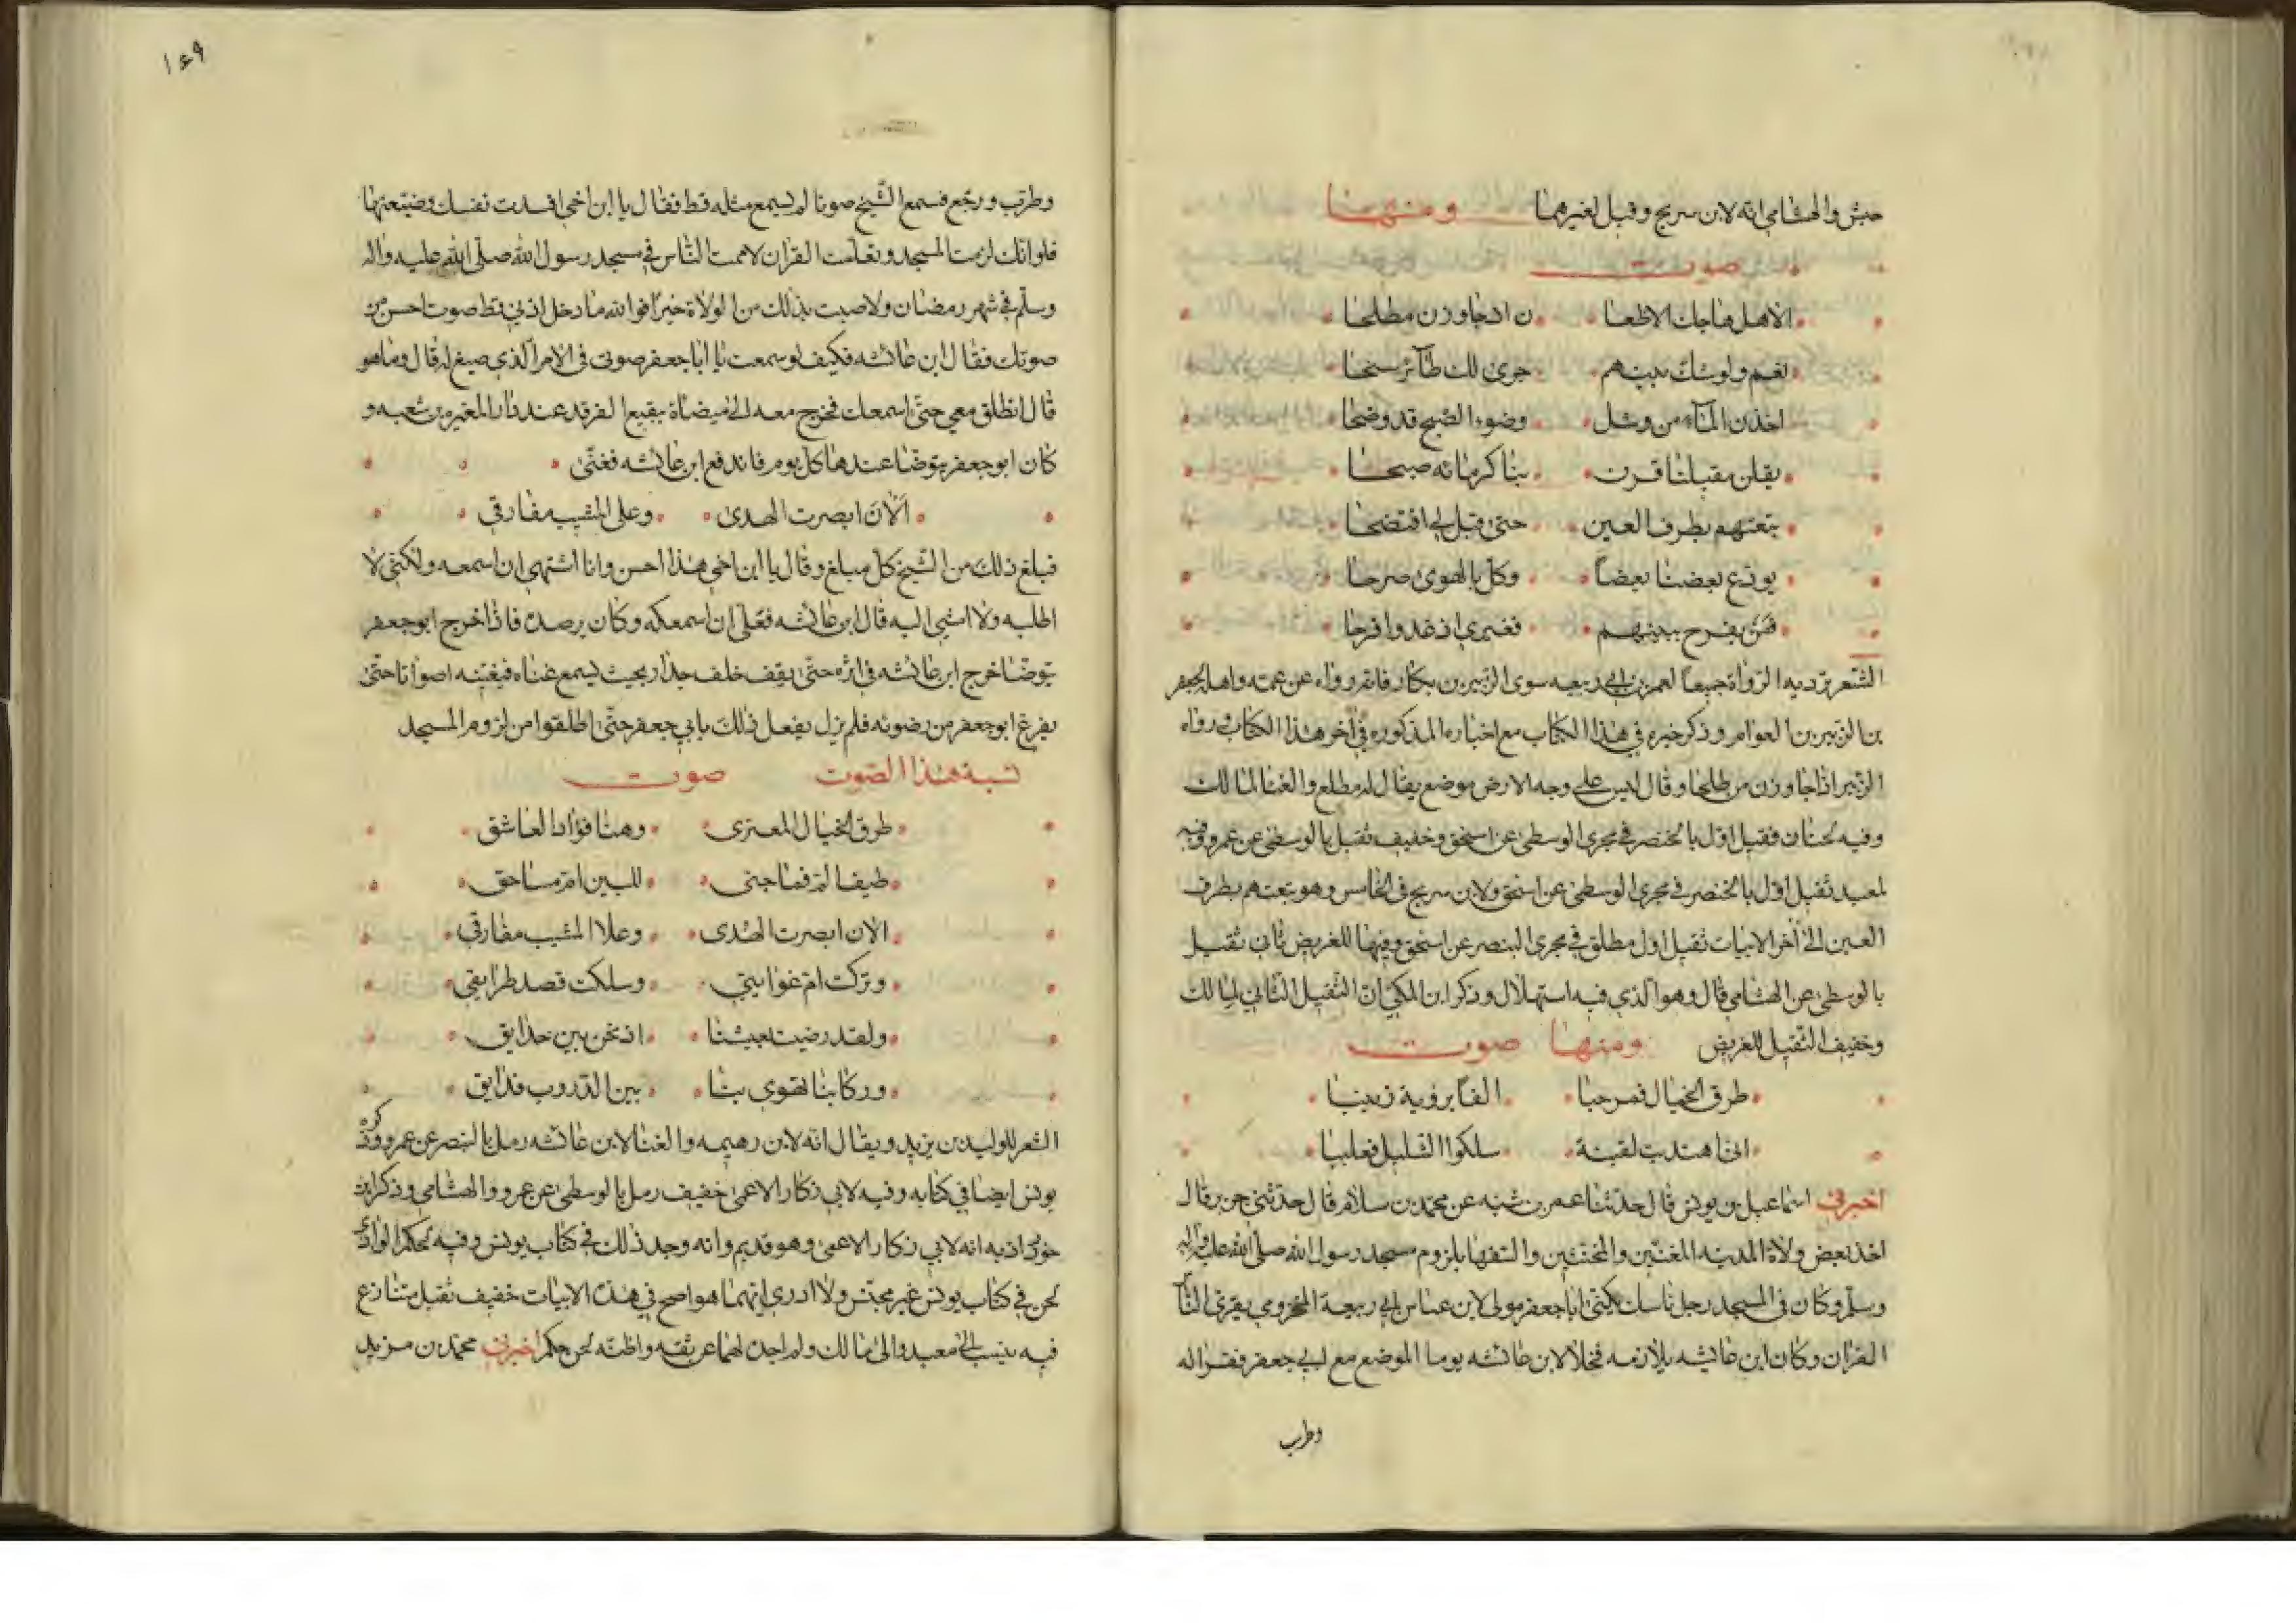 حبش والهشامي انه لابن سريج وقيل لغيرهما ومنهما
صوت
الا هل هاجك الاظعا ن اذ جاوزن مطلحا
نعم ولوشك بينهم جرى لك طآئر سنحا
اخذن المآء من وشل وضوء الصبح قد وضحا
يقلن مقيلنا قرن بناكر مائه صبحا
تبعتهم بطرف العين حتى قيل لي افتضحا
يودع بعضنا بعضاً وكل بالهوى صرحا
فمن يفرح ببينهم فغيري اذ غدوا فرحا
الشعر ترديه الرواة جميعاً لعمر بن ابي ربيعه سوى الزبير بن بكار فانه رواه عن عمته واهله لجعفر
بن الزبير بن العوام وذكر خبره في هذا الكتاب مع اخباره المذكوره في آخر هذا الكتاب ورواه
الزبير اذا جاوزن من طلحا وقال ليس على وجه الارض موضع يقال له مطلع والغنا لمالك
وفيه لحنان فقيل اول بالخنصر في مجرى الوسطى عن اسحق وخفيف ثقيل بالوسطى عن عمرو وفيه
لمعبد ثقيل اول بالخنصر في مجرى الوسطى عن اسحق ولابن سريج في الخامس وهو تبعتهم بطرف
العين الى آخر الابيات ثقيل اول مطلق في مجرى البنصر عن اسحق وفيها للغريض ثاني ثقيل
بالوسطى عن الهشامي قال وهو الذي فيه استهلال وذكر ابن المكي ان الثقيل الثاني لمالك
وخفيف الثقيل للغريض ومنها صوت
طرق الخيال فمرحبا الفاً برؤية زينبا
انى اهتديت لفتية سلكوا السليل فعليبا
اخبرني اسماعيل بن يونس قال حدثنا عمر بن شبه عن محمد بن سلام قال حدثني جرير قال
اخذ بعض ولاة المدينه المغنين والمخنثين والسفها بلزوم مسجد رسول الله صلى الله عليه وآله
وسلم وكان في المسجد رجل ناسك يكنى ابا جعفر مولى لابن عياس ابي ربيعة المخزومي يقرئ النا
القران وكان ابن عائشه يلازمه فخلا لابن عائشه يوما الموضع مع ابي جعفر فقرا له
وطرب
١٤٩
وطرب ورجع فسمع الشيخ صوتا لم يسمع مثله قط فقال يا ابن اخي افسدت نفسك وضيعتها
فلو انك لزمت المسجد وتعلمت القران لاممت الناس في مسجد رسول الله صلى الله عليه واله
وسلم في شهر رمضان ولاصبت بذلك من الولاة خيرا فوالله ما دخل اذني قط صوت احسن من
صوتك فقال ابن عائشه فكيف لو سمعت يا ابا جعفر صوتي في الامر الذي صيغ له قال وما هو
قال انطلق معي حتى اسمعك فخرج معه الى ميضاة ببقيع الغرقد عند دار المغيره بن شعبه و
كان ابو جعفر يتوضا عندها كل يوم فاندفع ابن عائشه فغنى
الآن ابصرت الهدى وعلى المشيب مفارقي
فبلغ ذلك من الشيخ كل مبلغ وقال يا ابن اخي هذا احسن وانا اشتهي ان اسمعه ولكني لا
اطلبه ولا امشي اليه قال ابن عائشه فعلي ان اسمعكه وكان يرصده فاذا خرج ابو جعفر
يتوضا خرج ابن عائشه في اثره حتى يقف خلف جدار بحيث يسمع غناه فيغنيه اصواتا حتى
يفرغ ابو جعفر من وضوئه فلم يزل يفعل ذلك بابي جعفر حتى اطلقوا من لزوم المسجد
نسبة هذا الصوت صوت
طرق الخيال المعتري وهنا فؤاد العاشق
طيف الم فهاجني للبين ام مساحق
الان ابصرت الهدى وعلا المشيب مفارقي
وتركت ام غوايتي وسلكت قصد طرايقي
ولقد رضيت بعيشنا اذ نحن بين حدايق
وركابنا تهوي بنا بين الدروب فدابق
الشعر للوليد بن يزيد ويقال انه لابن رهيمه والغنا لابن عائشه رمل بالبنصر عن عمرو وذكره
يونس ايضا في كتابه وفيه لابي زكار الاعمى خفيف رمل بالوسطى عن عمرو والهشامي وذكر ابن
خرداذبه انه لابي زكار الاعمى وهو قديم وانه وجد ذلك في كتاب يونس وفيه لحكم الوادي
لحن في كتاب يونس غير مجنس ولا ادري ايهما هو اصح في هذه الابيات خفيف ثقيل متنازع
فيه ينسب الى معبد والى مالك ولم اجده لهما عن ثقه واظنه لحن حكم اخبرني محمد بن مزيد